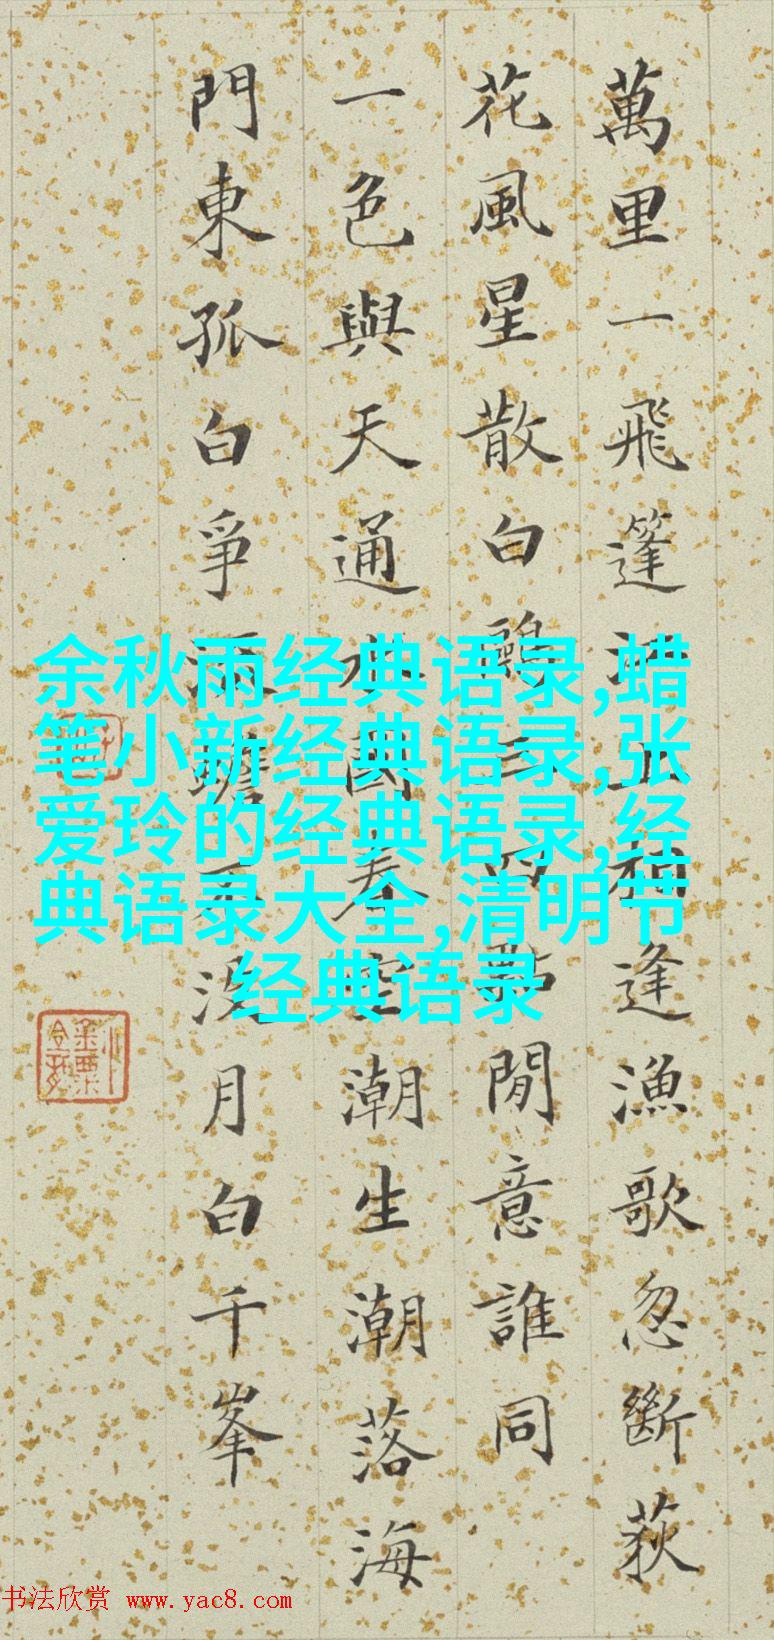 萬里一飛篷江上相逢漁歌忽斷荻
花風星散白鷗三四點閒意誰同
一色與天通水國春空潮生潮落海
門東孤白爭蟾沒月白千峯
余秋雨经典语录,蜡
笔小新经典语录,张
爱玲的经典语录,经
典语录大全,清明节
经典语录
书法欣赏 www.yac8.com